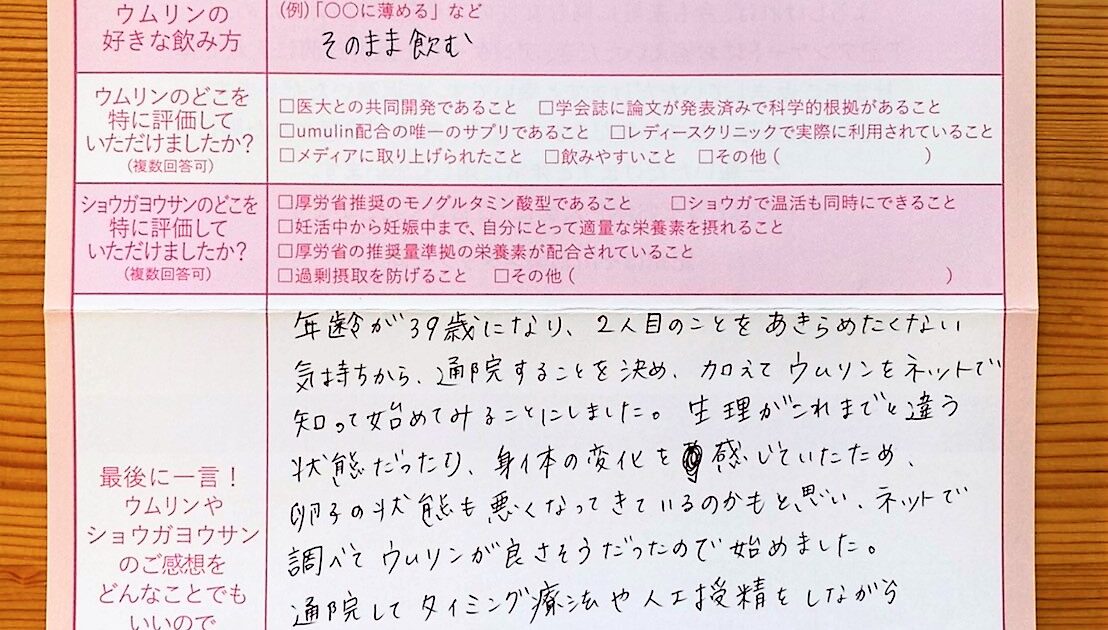 ウムリンの
好きな飲み方
(例)「〇〇に薄める」など
そのまま飲む
ウムリンのどこを
特に評価して
いただけましたか?
(複数回答可)
□医大との共同開発であること □学会誌に論文が発表済みで科学的根拠があること
□umulin配合の唯一のサプリであること □レディースクリニックで実際に利用されていること
□メディアに取り上げられたこと □飲みやすいこと □その他( )
ショウガヨウサンのどこを
特に評価して
いただけましたか?
(複数回答可)
□厚労省推奨のモノグルタミン酸型であること □ショウガで温活も同時にできること
□妊活中から妊娠中まで、自分にとって適量な栄養素を摂れること
□厚労省の推奨量準拠の栄養素が配合されていること
□過剰摂取を防げること □その他( )
最後に一言!
ウムリンや
ショウガヨウサン
のご感想を
どんなことでも
いいので
年齢が39歳になり、2人目のことをあきらめたくない
気持ちから、通院することを決め、加えてウムリンをネットで
知って始めてみることにしました。生理がこれまでと違う
状態だったり、身体の変化を感じていたため、
卵子の状態も悪くなってきているのかもと思い、ネットで
調べてウムリンが良さそうだったので始めました。
通院してタイミング療法や人工授精をしながら